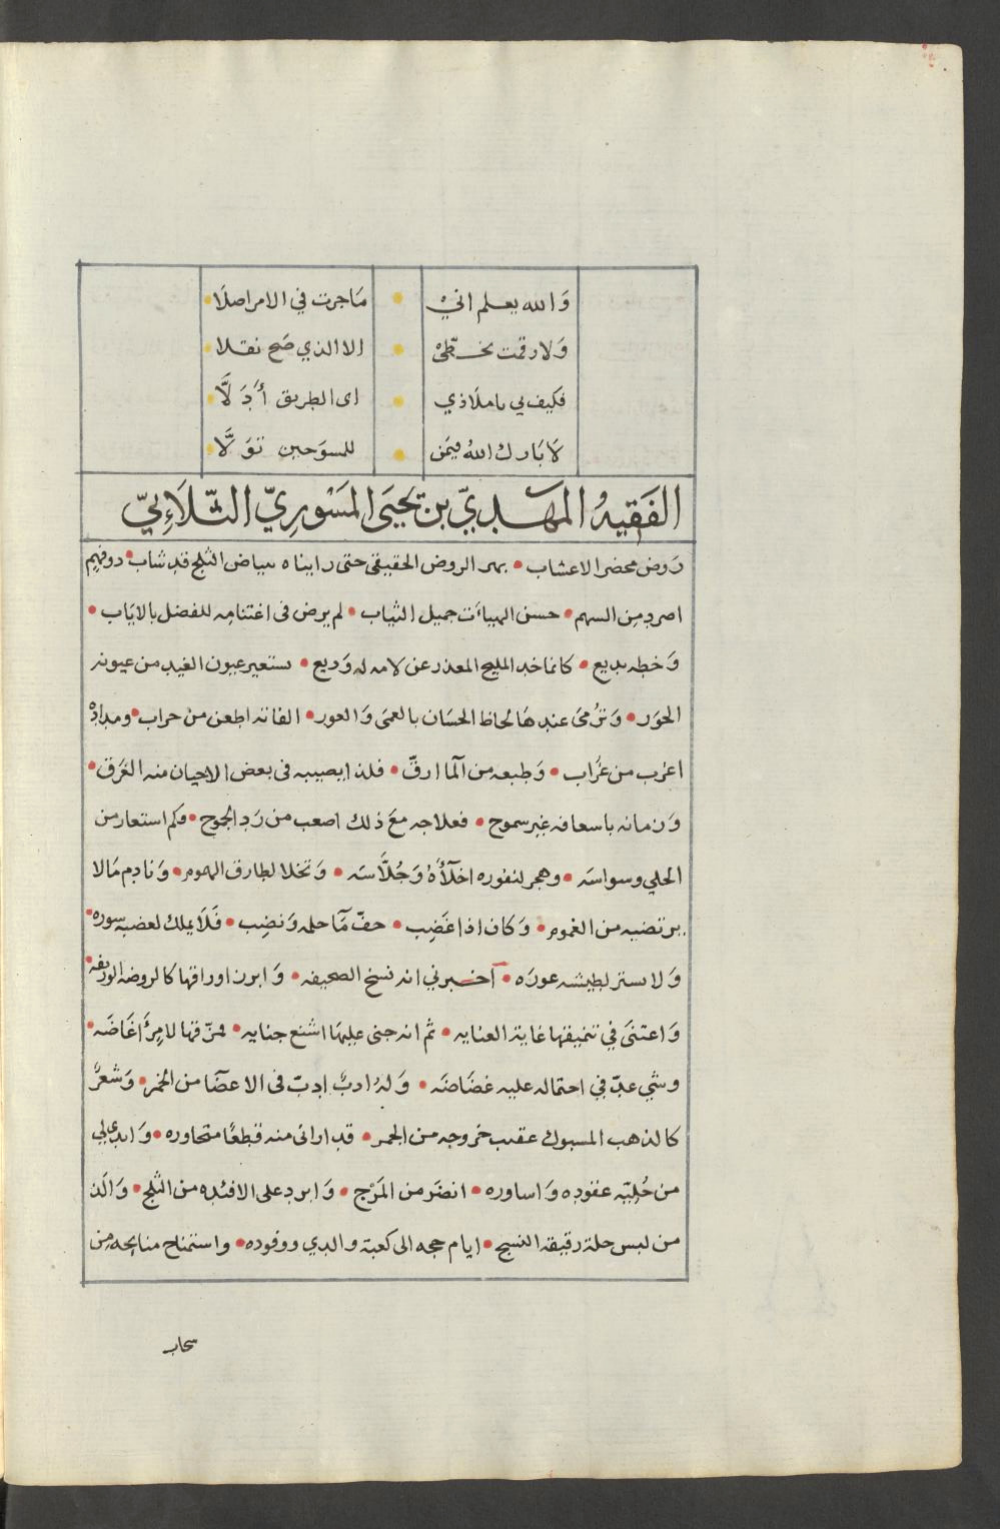 وَالله يعلم انيْ • مَاجرت في الامراصلَا •
وَلارقمت بخطّىْ • الا الذي صَح نقلا •
فكيف لي ياملَاذي • اى الطريق أَدَلَّا •
لَابَارك اللهُ فيمَن • للسوَحين توَلَّا •
الفَقيهُ المَهديّ بن يَحيَى المَسْوِريّ الثّلَاءِيّ
رَوض مخضر الاعشاب • بهر الروض الحقيقى حتى رايناه ببياض الثلج قد شاب • دوفهم
اصرد من السهم • حسن الهيأت جميل الثياب • لم يرض فى اغتنامه للفضل بالاياب •
وَخطه بديع • كانما خد المليح المعذر عن لامه له وَديع • يستعير عيون الغيد من عيونه
الحوَر • وَترْمىَ عندهَا لحاظ الحسَان بالعمىَ وَالعور • الفاته اطعن من حراب • ومداده
اغرب من غرَاب • وَطبعه من المآ ارقّ • فلذا يصيبه فى بعض الاحيان منه الغرَق •
وَزمانه باسعافه غير سموح • فعلاجه معَ ذلك اصعب من رَد الجموح • وكم استعار من
الحلي وسواسَه • وهجر لنفوره اخلّآءَهُ وَجُلَّاسَه • وَتخلا لطارق الهموم • وَنادم مَالا
يرتضيه من الغموم • وَكان اذا غَضِب • جفّ مَآ حلمه وَنضِب • فَلَا يملك لغضبه سوره •
وَلا يستر لطيشه عورَه • آخبرني انه نسخ الصحيفه • وَابرز اوراقها كالروضه الوريفه •
وَاعتنىَ في تنميقها غاية العنايه • ثم انه جنى عليهَا اشنع جنايه • فمزّقها لامرِءٍ اغَاضَه •
وشي عدّ في احتماله عليه غضَاضَه • وَلهُ ادبٌ ادبّ فى الاعضَآ من الخمر • وَشعرٌ
كالذهب المسبوك عقيب خروجه من الجمر • قد ارانى منه قطعًا متجاوره • وَابدىلي
من حُليّه عقوده وَاساوره • انضَر من المَرْج • وَابرد على الافئده من الثلج • وَالَذ
من لبس حلة رقيقة النسج • ايام حجه الى كعبة والدي ووفوده • واستمناح منايحه من
سحاب